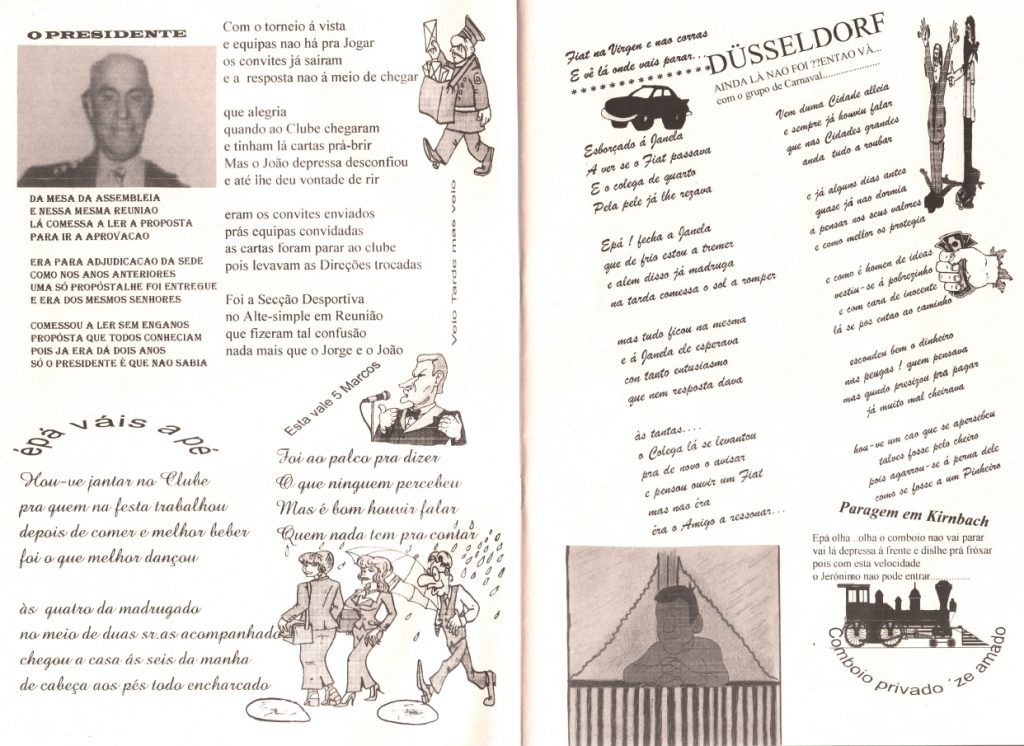 O PRESIDENTE
DA MESA DA ASSEMBLEIA
E NESSA MESMA REUNIAO
LÁ COMESSA A LER A PROPOSTA
PARA IR A APROVACAO
ERA PARA ADJUDICACAO DA SEDE
COMO NOS ANOS ANTERIORES
UMA SÓ PROPÓSTALHE FOI ENTREGUE
E ERA DOS MESMOS SENHORES
COMESSOU A LER SEM ENGANOS
PROPÓSTA QUE TODOS CONHECIAM
POIS JA ERA DÁ DOIS ANOS
SÓ O PRESIDENTE É QUE NAO SABIA
Com o torneio á vista
e equipas nao há pra Jogar
os convites já sairam
e a resposta nao á meio de chegar
que alegria
quando ao Clube chegaram
e tinham lá cartas prá-brir
Mas o João depressa desconfiou
e até lhe deu vontade de rir
eram os convites enviados
prás equipas convidadas
as cartas foram parar ao clube
pois levavam as Direções trocadas
Foi a Secção Desportiva
no Alte-simple em Reunião
que fizeram tal confusão
nada mais que o Jorge e o João
Veio Tarde mas veio
épá váis a pé
Hou-ve jantar no Clube
pra quem na festa trabalhou
depois de comer e melhor beber
foi o que melhor dançou
às quatro da madrugado
no meio de duas sr.as acompanhado
chegou a casa ás seis da manha
de cabeça aos pés todo encharcado
Esta vale 5 Marcos
Foi ao palco pra dizer
O que ninguem percebeu
Mas é bom houvir falar
Quem nada tem pra contar
Fiat na Virgen e nao corras
E vê lá onde vais parar...
* * * * * * * * * * * * * * *
Esborçado á Janela
A ver se o Fiat passava
E o colega de quarto
Pela pele já lhe rezava
Epá ! fecha a Janela
que de frio estou a tremer
e alem disso já madruga
na tarda comessa o sol a romper
mas tudo ficou na mesma
e á Janela ele esperava
con tanto entusiasmo
que nem resposta dava
às tantas....
o Colega lá se levantou
pra de novo o avisar
e pensou ouvir um Fiat
mas nao éra
éra o Amigo a ressonar...
DÜSSELDORF
AINDA LÀ NAO FOI ??ENTAO VÀ...
com o grupo de Carnaval....................
Vem duma Cidade alleia
e sempre já houviu falar
que nas Cidades grandes
anda tudo a roubar
e já alguns dias antes
quase já nao dormia
a pensar nos seus valores
e como mellor os protegia
e como é homen de ideas
vestiu-se á pobrezinho
e com cara de inocente
lá se pos entao ao caminho
escondeu bem o dinheiro
nas peugas ! quem pensava
mas qundo presizou pra pagar
já muito mal cheirava
hou-ve um cao que se apersebeu
talves fosse pelo cheiro
pois agarrou-se á perna dele
como se fosse a um Pinheiro
Paragem em Kirnbach
Epá olha ..olha o comboio nao vai parar
vai lá depressa á frente e dislhe prá fróxar
pois com esta velocidade
o Jerónimo nao pode entrar..............
Comboio privado ´ze amado